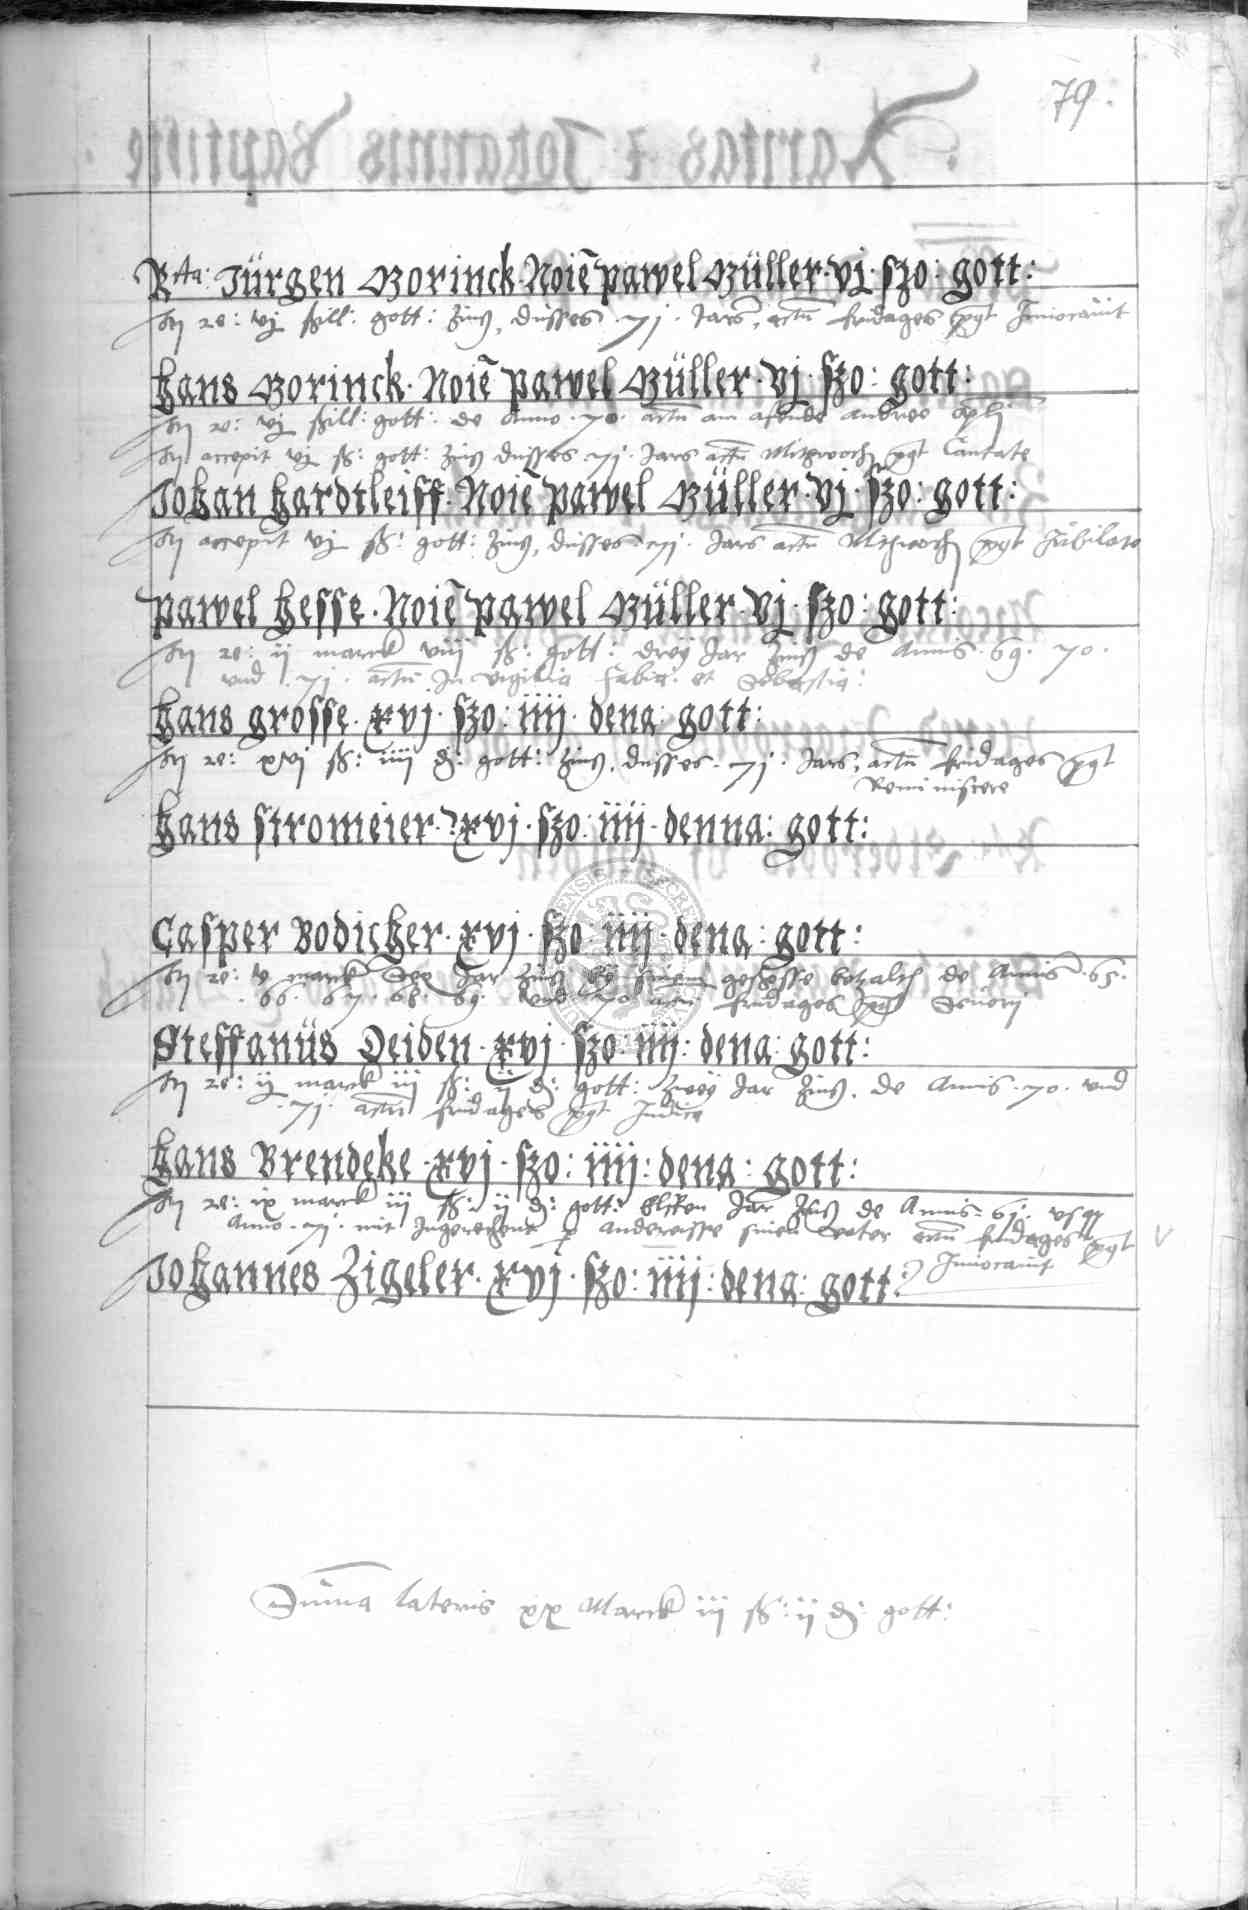 79.
Rta: Jürgen Borinck. Noiē pawel Müller. vj. szo: gott:
re: vj ßill: gott: Zins, dusses .7j. Jars, actū fridages pꝰt Inuocauit
Hans Borinck. Noiē pawel Müller. vj. szo: gott:
re: vj ßill: gott: de Anno .70. actū am afende Andree apli
accepit vj ß: gott: Zins dusses 7j. Jars actū Mitwoch pꝰt Cantate
Johan Hardtleiff. Noiē pawel Müller. vj. szo: gott:
accepit vj ß: gott: Zins, dusses .7j. Jars actū Mitwoch pꝰt Jubilate
pawel Hesse. Noiē pawel Müller. vj. szo: gott:
re: ij marck viij ß: gott: drey Jar Zins de Annis .69. 70.
vnd .7j. actū In vigilia Fabia: et Sebastia:
Hans grosse. xvj. szo: iiij. dena: gott:
re: xvj ß: iiij d: gott: Zins, dusses .7j. Jars, actū fridages pꝰt
Reminiscere
Hans stromeier. xvj. szo: iiij. denna: gott:
Casper Bodicker. xvj. szo: iiij. dena: gott:
re: v marck Sex Jar Zins betzalt de Annis .65.
.66. 67. 68. 69. vnd 70. actū fridages pꝰt Seuerj
Steffanüs Deiden. xvj. szo: iiij: dena: gott:
re: ij marck iij ß: ij d: gott: Zwey Jar Zins, de Annis .70. vnd
.7j. actū fridages pꝰt Judica
Hans Brendeke. xvj. szo: iiij: dena: gott:
re: ix marck iij ß: ij d: gott: Elffen Jar Zins de Annis .6j. vsqꝫ
Anno .7j. mit actū fridages pꝰt
Inuocauit
Johannes Zigeler. xvj. szo: iiij: dena: gott:
Suma lateris xx Marck iij ß: ij d: gott: